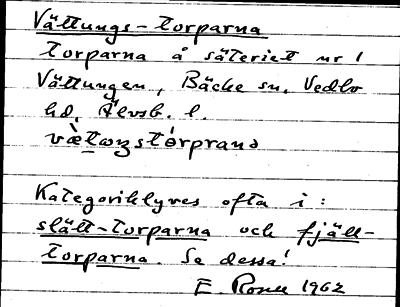 Vättungs-torparna
torparna å säteriet nr 1
Vättungen, Bäcke sn, Vedbo
hd, Älvsb. l.
Kategoriklyves ofta i:
slätt-torparna och fjäll-
torparna. Se dessa!
E. 1962